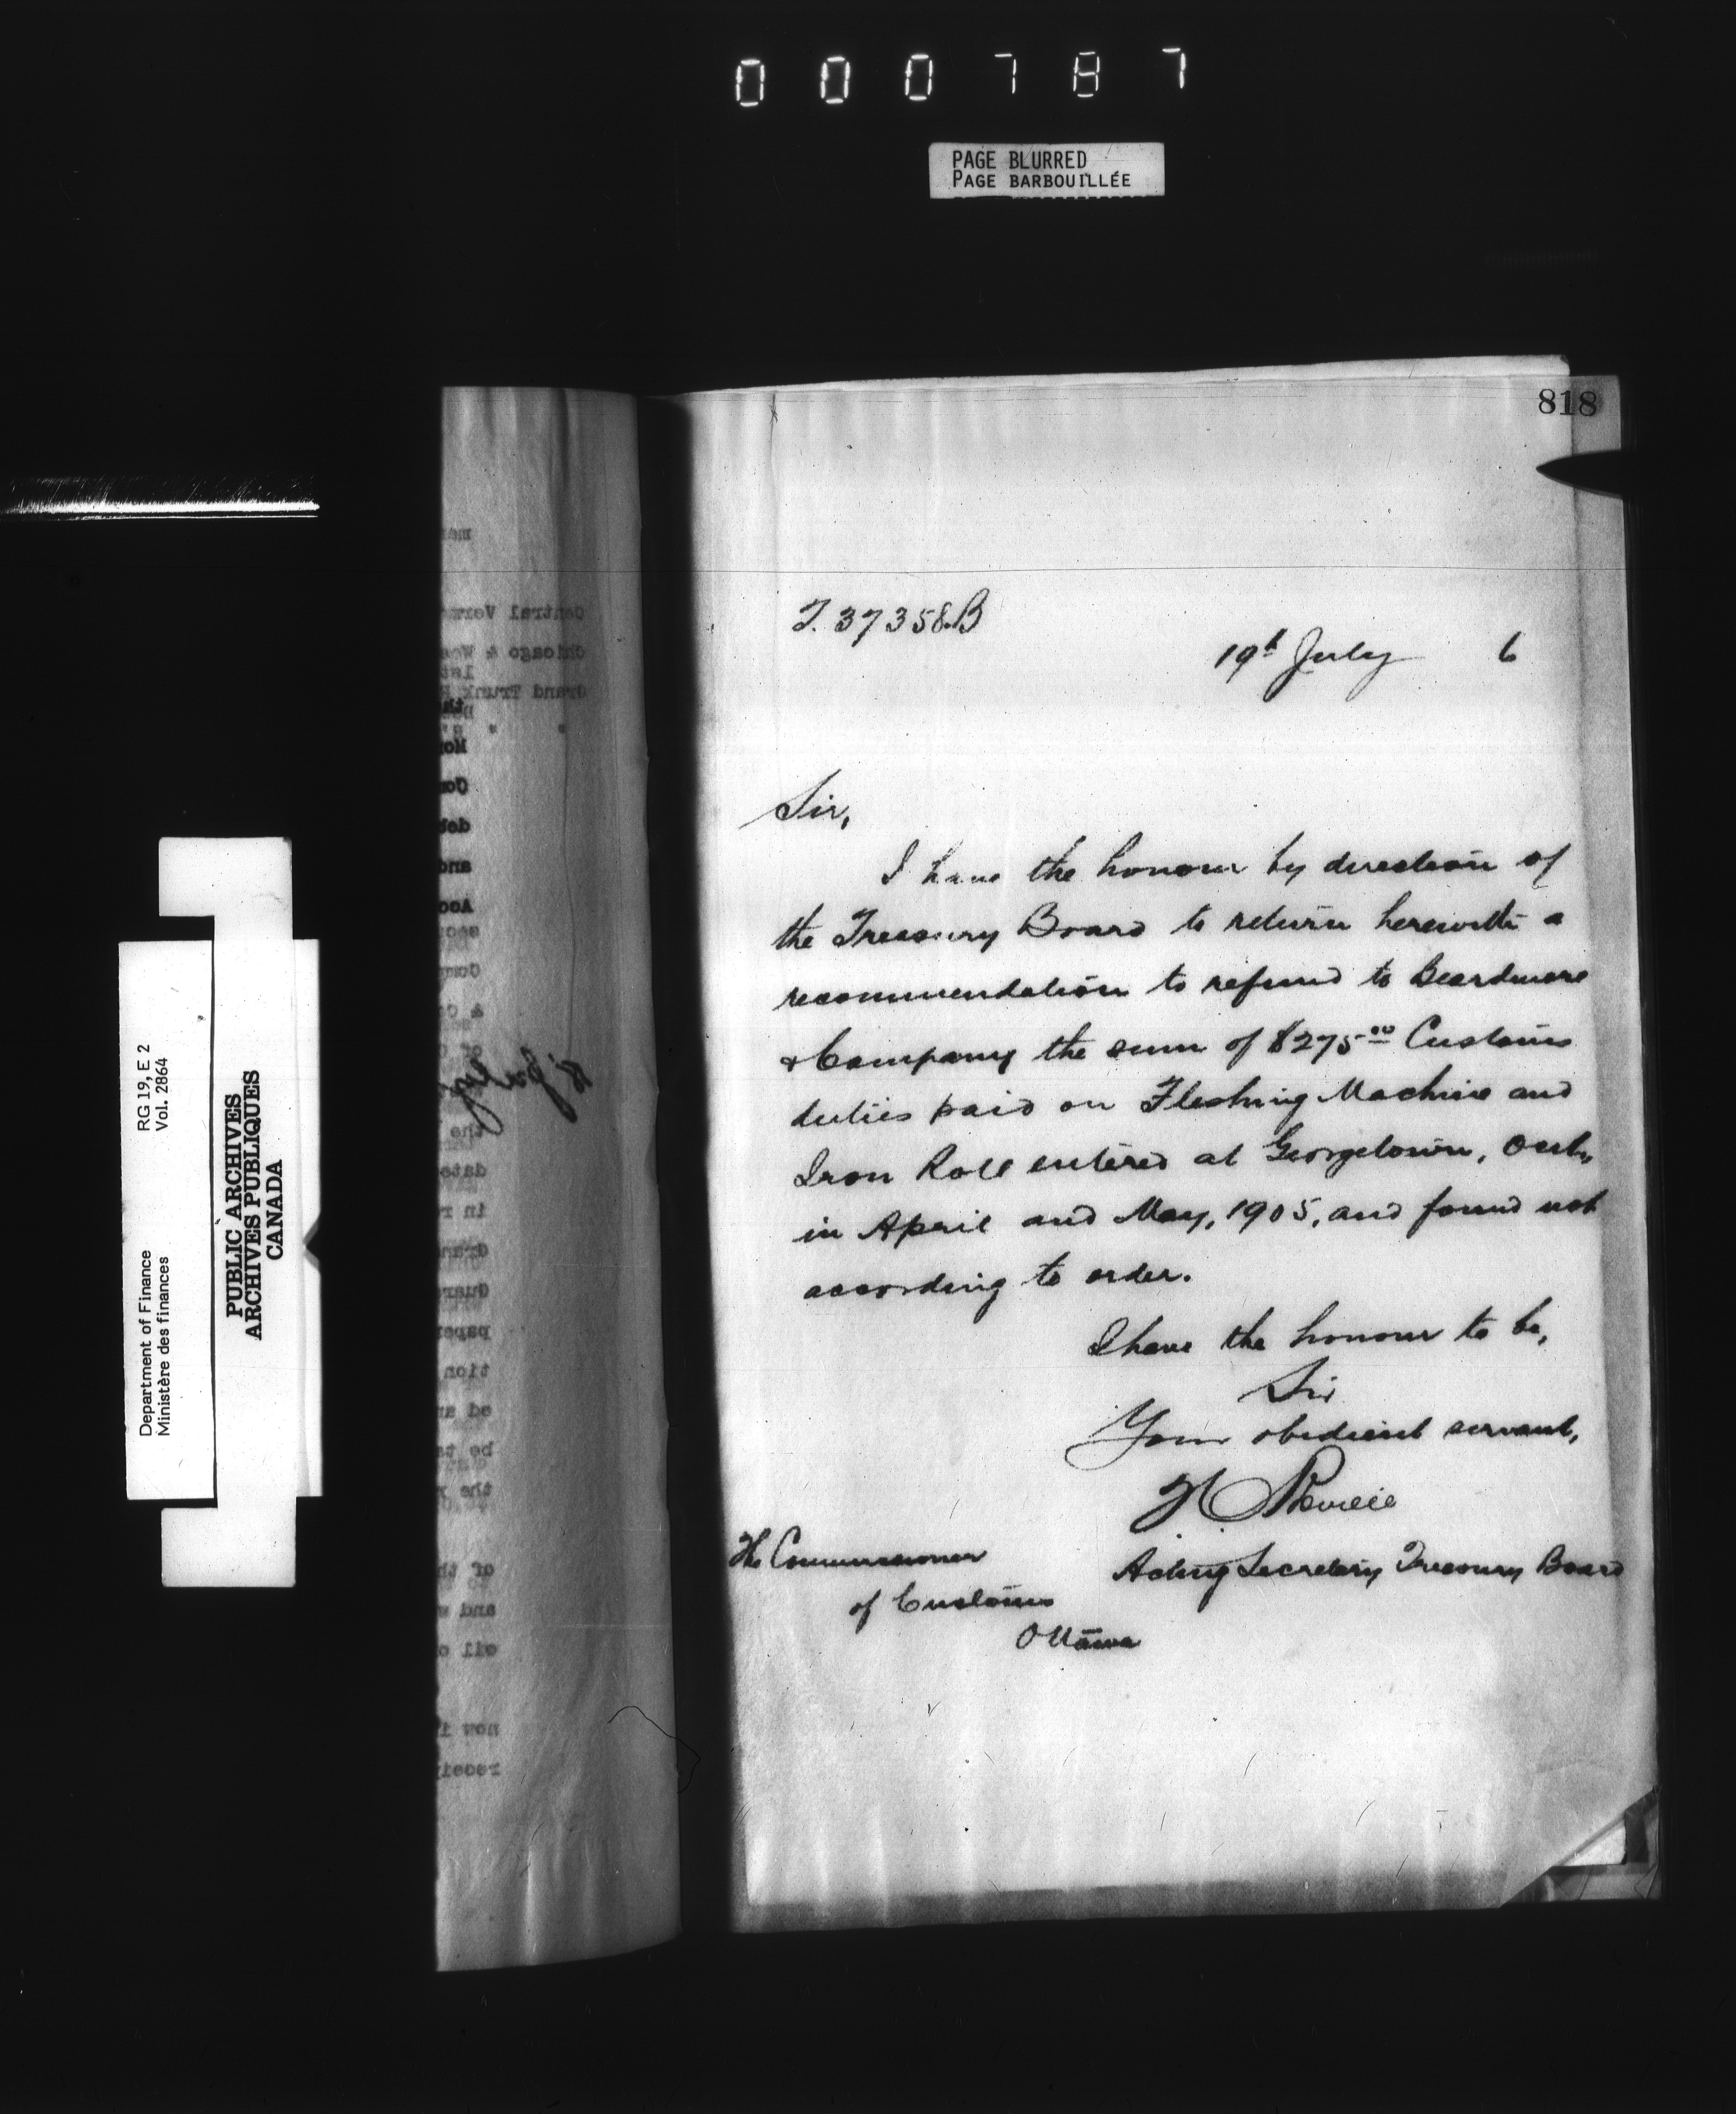 000787
PAGE BLURRED
PAGE BARBOUILLÉE
818
T. 37358.B
19th July 6
Sir,
I have the honour by direction of
the Treasury Board to return herewith a
recommendation to refund to Beardmore
& Company the sum of $275.00 Customs
duties paid on Fleshing Machine and
Iron Roll entered at Georgetown, Ont.,
in April and May, 1905, and found not
according to order.
I have the honour to be,
Sir
Your obedient servant,
Acting Secretary Treasury Board
The Commissioner
of Customs
Ottawa
Department of Finance RG 19, E 2
Ministère des finances Vol. 2864
PUBLIC ARCHIVES
ARCHIVES PUBLIQUES
CANADA
Central Verm
Chicago & Wes
Grand Trunk